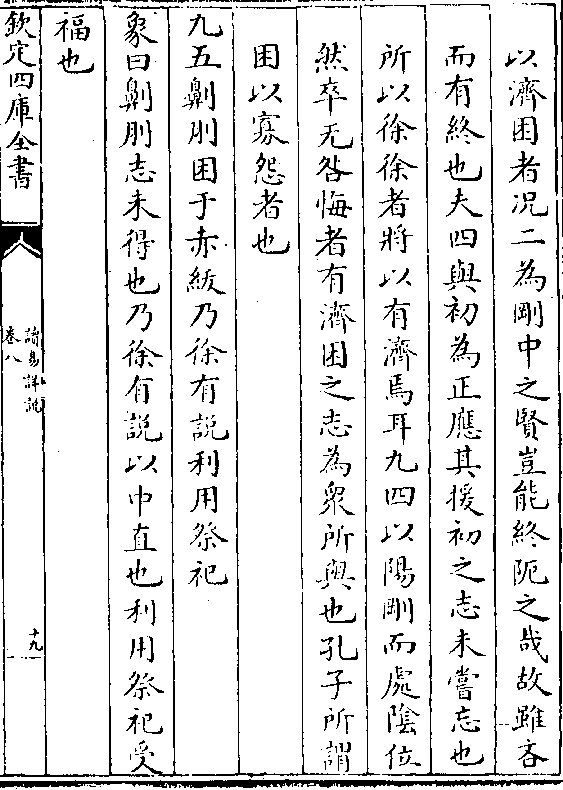 以濟困者况二為剛中之賢豈能終阨之哉故雖吝
而有終也夫四與初為正應其援初之志未嘗忘也
所以徐徐者將以有濟焉耳九四以陽剛而處陰位
然卒无咎悔者有濟困之志為衆所與也孔子所謂
困以寡怨者也
九五劓刖困于赤紱乃徐有説利用祭祀
象曰劓刖志未得也乃徐有説以中直也利用祭祀受
福也
欽定四庫全書
讀易詳說
卷八
十九